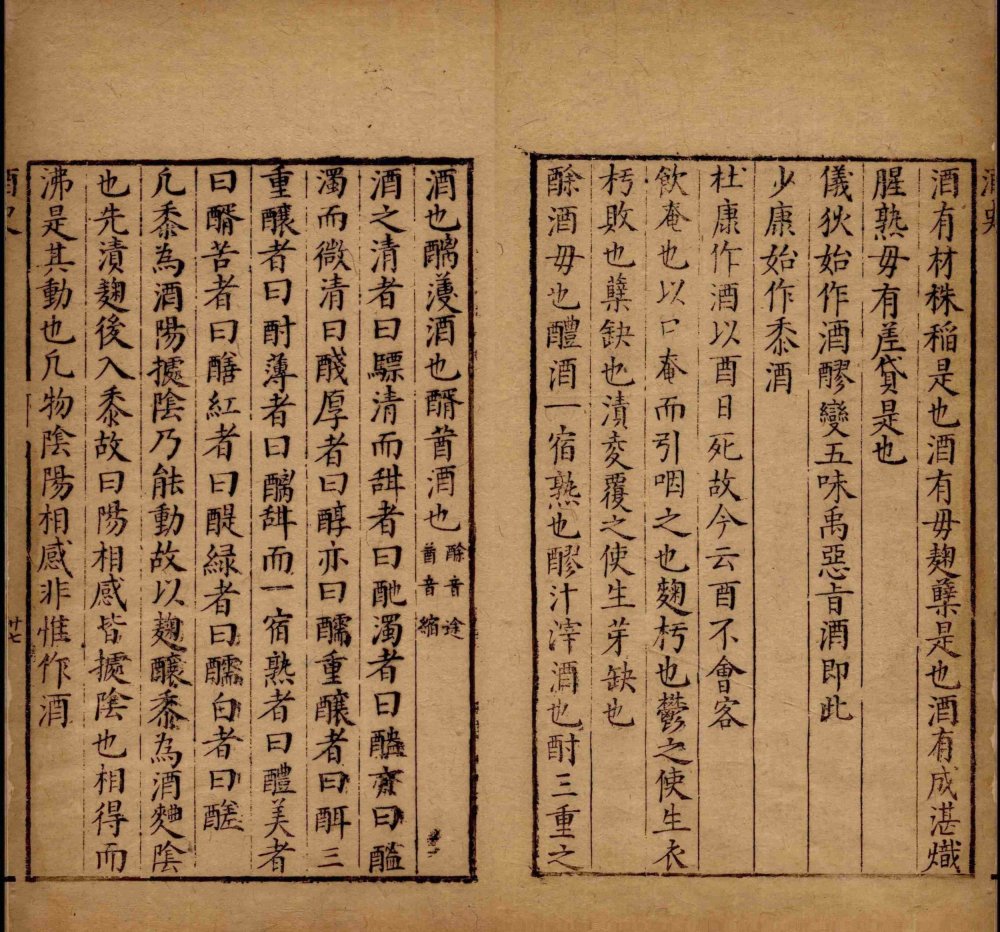 酒有材株稻是也酒有毋麹糵是也酒有成湛熾
腥熟毋有差貸是也
儀狄始作酒醪變五味禹惡旨酒即此
少康始作黍酒
杜康作酒以酉日死故今云酉不會客
飲奄也以口奄而引咽之也麹朽也鬱之使生衣
朽敗也糵缺也漬麥覆之使生芽缺也
酴酒毋也醴酒一宿熟也醪汁滓酒也酎三重之
酒也醨薄酒也醑莤酒也酴音途莤音縮
酒之清者曰醥清而甜者曰酏濁者曰醠亦曰醖
濁而微清曰醆厚者曰醇亦曰醹重釀者曰酘三
重釀者曰酎薄者曰醨甜而一宿熟者曰醴美者
曰醑苦者曰醶紅者曰醍綠者曰醽白者曰醝
凡黍為酒陽據陰乃能動故以麹釀黍為酒麹陰
也先漬麹後入黍故曰陽相感皆據陰也相得而
沸是其動也凡物陰陽相感非惟作酒
酒史
廿七